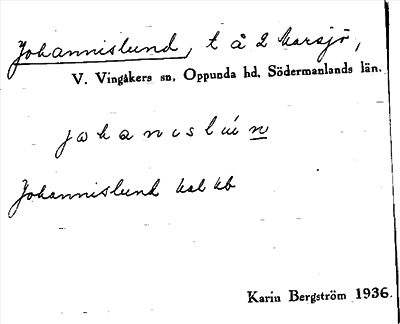 Johannislund, t å 2 Marsjö,
V. Vingåkers sn, Oppunda hd, Södermanlands län.
johanislún
Johannislund kbl kb
Karin Bergström 1936.